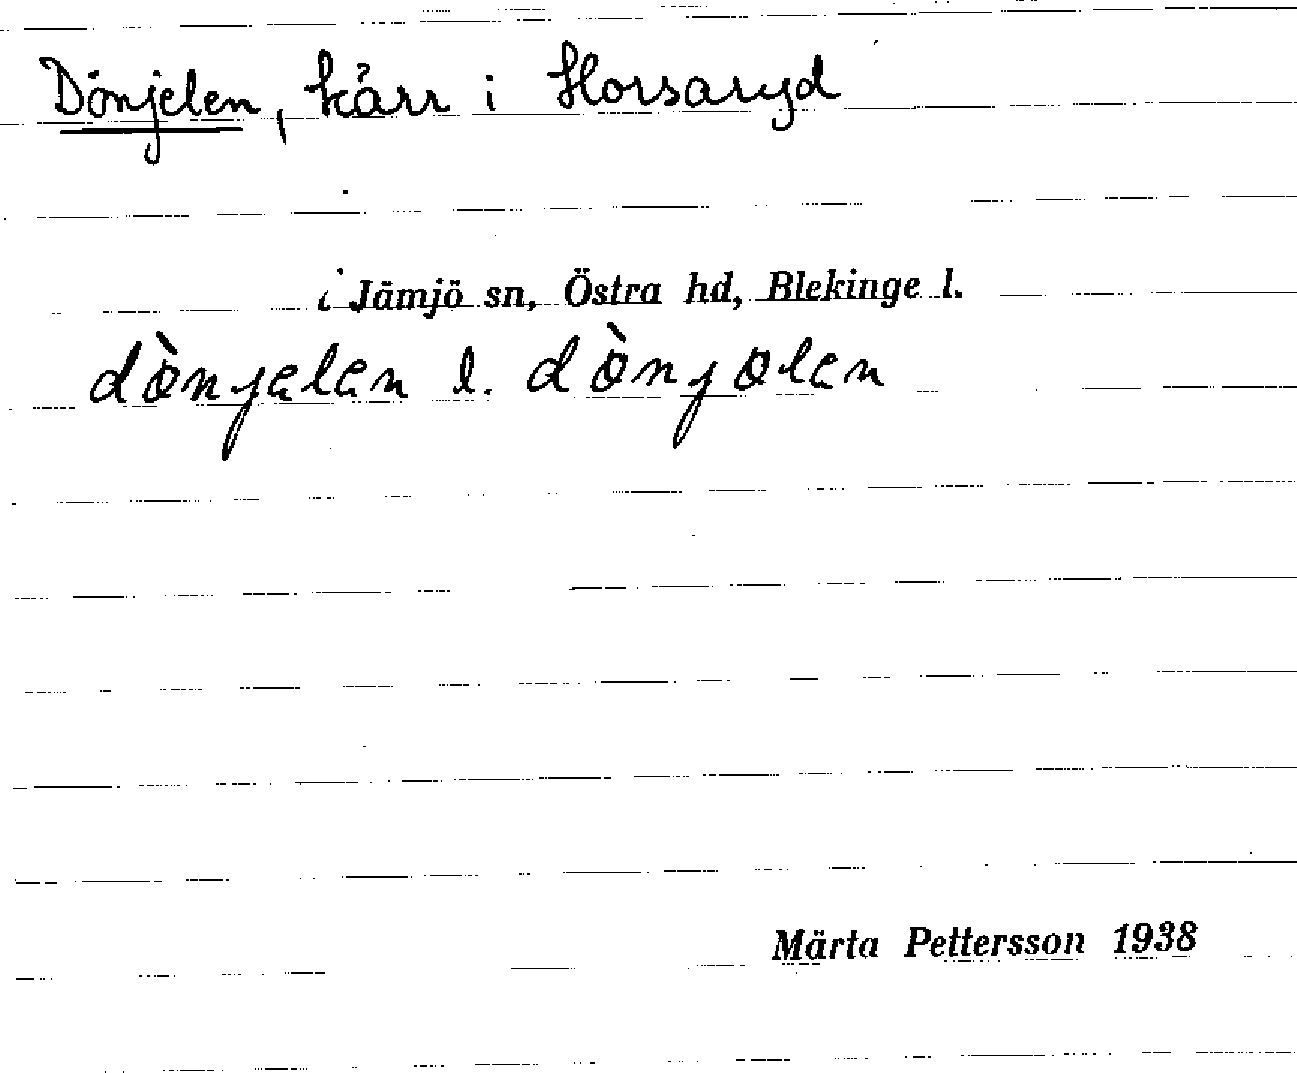 Dönjelen, kärr i Horsaryd
i Jämjö sn, Östra hd, Blekinge l.
dònjelen l. dònjölen
Märta Pettersson 1938